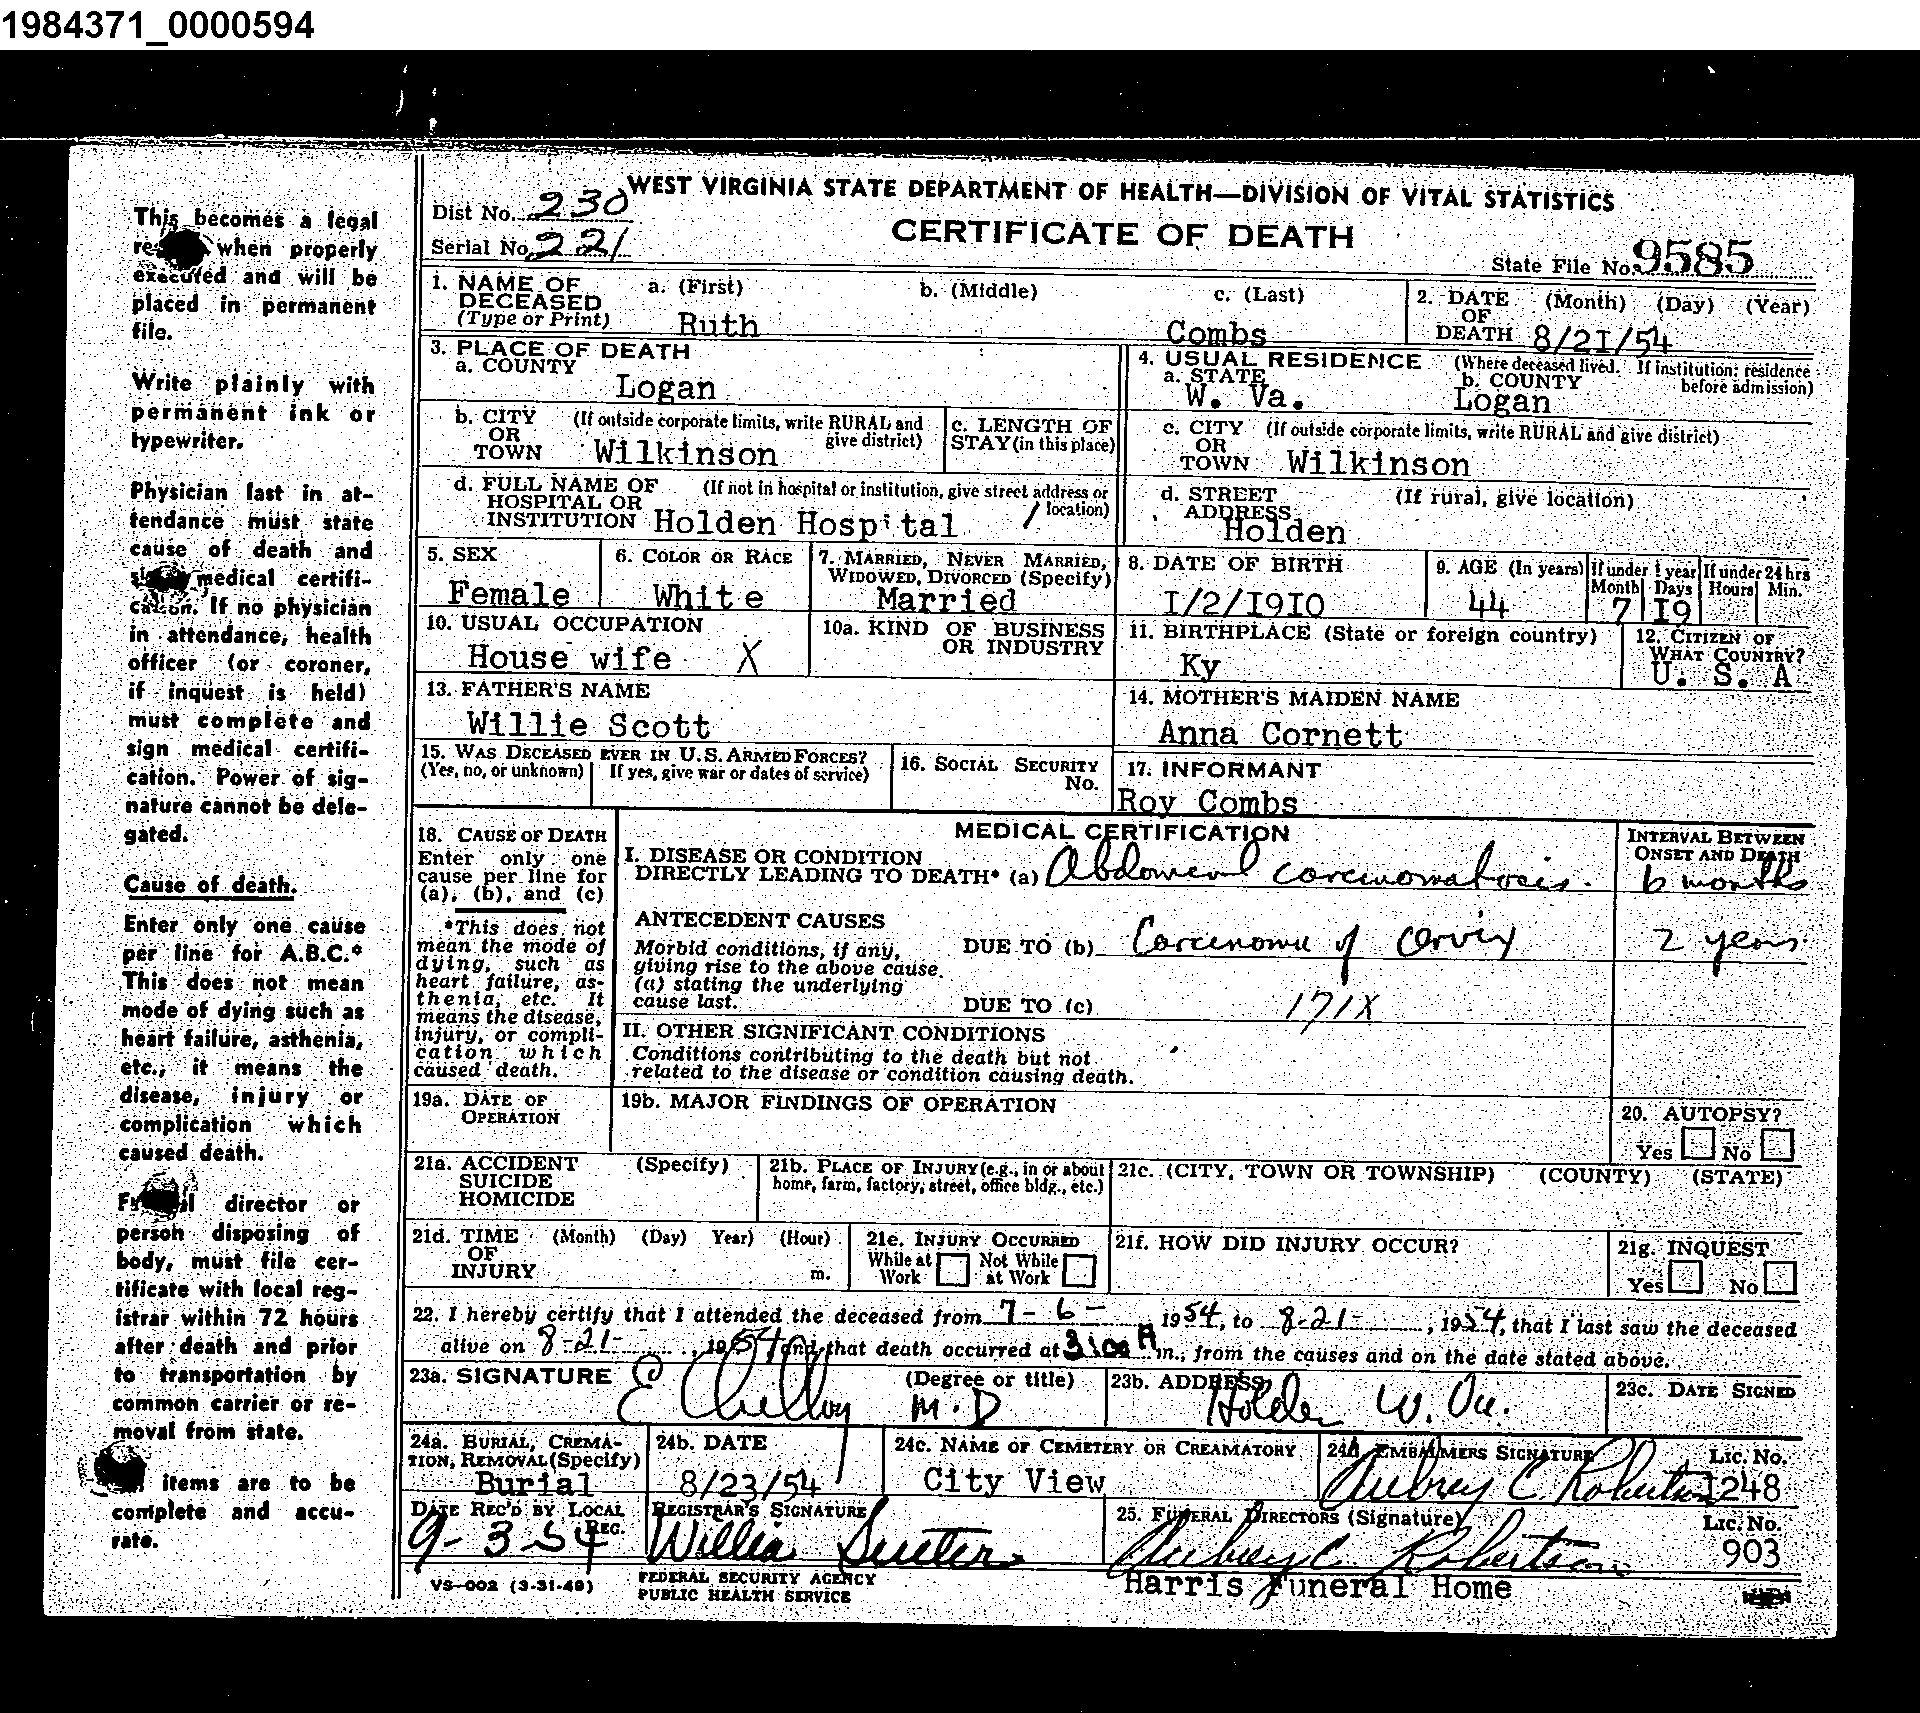 1984371_0000594
WEST VIRGINIA STATE DEPARTMENT OF HEALTH—DIVISION OF VITAL STATISTICS
CERTIFICATE OF DEATH
Dist No. 230
Serial No. 221
State File No. 9585
This becomes a legal
when properly
executed and will be
placed in permanent
file.
Write plainly with
permanent ink or
typewriter.
Physician last in at-
tendance must state
cause of death and
medical certifi-
cation. If no physician
in attendance, health
officer (or coroner,
if inquest is held)
must complete and
sign medical certifi-
cation. Power of sig-
nature cannot be dele-
gated.
Cause of death.
Enter only one cause
per line for A.B.C.*
This does not mean
mode of dying such as
heart failure, asthenia,
etc., it means the
disease, injury or
complication which
caused death.
director or
person disposing of
body, must file cer-
tificate with local reg-
istrar within 72 hours
after death and prior
to transportation by
common carrier or re-
moval from state.
items are to be
complete and accu-
rate.
1. NAME OF DECEASED (Type or Print)
a. (First) b. (Middle) c. (Last)
Ruth Combs
2. DATE OF DEATH (Month) (Day) (Year)
8/2I/54
3. PLACE OF DEATH
a. COUNTY
Logan
4. USUAL RESIDENCE (Where deceased lived. If institution: residence before admission)
a. STATE b. COUNTY
W. Va. Logan
b. CITY OR TOWN (If outside corporate limits, write RURAL and give district)
Wilkinson
c. LENGTH OF STAY (in this place)
c. CITY OR TOWN (If outside corporate limits, write RURAL and give district)
Wilkinson
d. FULL NAME OF HOSPITAL OR INSTITUTION (If not in hospital or institution, give street address or location)
Holden Hospital /
d. STREET ADDRESS (If rural, give location)
Holden
5. SEX
Female
6. COLOR OR RACE
White
7. MARRIED, NEVER MARRIED, WIDOWED, DIVORCED (Specify)
Married
8. DATE OF BIRTH
I/2/I9IO
9. AGE (In years) If under 1 year If under 24 hrs
Month Days Hours Min.
44 7 I9
10. USUAL OCCUPATION
House wife X
10a. KIND OF BUSINESS OR INDUSTRY
11. BIRTHPLACE (State or foreign country)
Ky
12. CITIZEN OF WHAT COUNTRY?
U. S. A
13. FATHER'S NAME
Willie Scott
14. MOTHER'S MAIDEN NAME
Anna Cornett
15. WAS DECEASED EVER IN U.S. ARMED FORCES?
(Yes, no, or unknown) If yes, give war or dates of service)
16. SOCIAL SECURITY No.
17. INFORMANT
Roy Combs
18. CAUSE OF DEATH
Enter only one
cause per line for
(a), (b), and (c)
*This does not
mean the mode of
dying, such as
heart failure, as-
thenia, etc. It
means the disease,
injury, or compli-
cation which
caused death.
MEDICAL CERTIFICATION
INTERVAL BETWEEN ONSET AND DEATH
I. DISEASE OR CONDITION
DIRECTLY LEADING TO DEATH* (a) Abdomenal carcinomatosis. 6 months
ANTECEDENT CAUSES
Morbid conditions, if any,
giving rise to the above cause.
(a) stating the underlying
cause last.
DUE TO (b) Carcinoma of cervix 2 years
DUE TO (c)
171X
II. OTHER SIGNIFICANT CONDITIONS
Conditions contributing to the death but not
related to the disease or condition causing death.
19a. DATE OF OPERATION
19b. MAJOR FINDINGS OF OPERATION
20. AUTOPSY?
Yes No
21a. ACCIDENT SUICIDE HOMICIDE (Specify)
21b. PLACE OF INJURY (e.g., in or about home, farm, factory, street, office bldg., etc.)
21c. (CITY, TOWN OR TOWNSHIP) (COUNTY) (STATE)
21d. TIME OF INJURY (Month) (Day) Year) (Hour) m.
21e. INJURY OCCURRED
While at Work Not While at Work
21f. HOW DID INJURY OCCUR?
21g. INQUEST
Yes No
22. I hereby certify that I attended the deceased from 7-6- 1954, to 8-21-, 1954, that I last saw the deceased
alive on 8-21-, 1954, and that death occurred at 3:00 A m., from the causes and on the date stated above.
23a. SIGNATURE (Degree or title)
M.D
23b. ADDRESS
Holden W. Va.
23c. DATE SIGNED
24a. BURIAL, CREMATION, REMOVAL (Specify)
Burial
24b. DATE
8/23/54
24c. NAME OF CEMETERY OR CREAMATORY
City View
24d. EMBALMERS SIGNATURE Lic. No.
Aubrey C. Robertson 1248
DATE REC'D BY LOCAL REG.
9-3-54
REGISTRAR'S SIGNATURE
Willia Sutter
25. FUNERAL DIRECTORS (Signature) Lic. No.
Aubrey C Robertson 903
Harris Funeral Home
VS-002 (3-31-49)
FEDERAL SECURITY AGENCY
PUBLIC HEALTH SERVICE